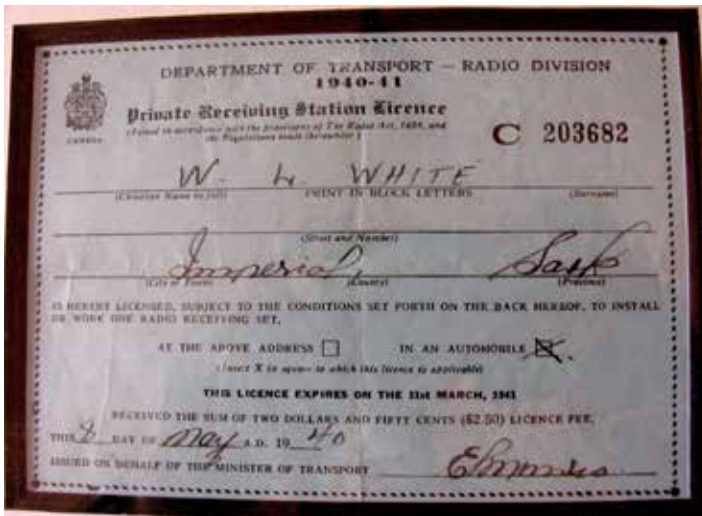 DEPARTMENT OF TRANSPORT — RADIO DIVISION
1940-41
Private Receiving Station Licence
(Issued in accordance with the provisions of The Radio Act, 1938, and
the Regulations made thereunder)
CANADA
C 203682
W. L. WHITE
(Christian Name in full) PRINT IN BLOCK LETTERS (Surname)
(Street and Number)
Imperial, Sask
(City or Town) (County) (Province)
IS HEREBY LICENSED, SUBJECT TO THE CONDITIONS SET FORTH ON THE BACK HEREOF, TO INSTALL
OR WORK ONE RADIO RECEIVING SET,
AT THE ABOVE ADDRESS IN AN AUTOMOBILE X
(Insert X in square to which this licence is applicable)
THIS LICENCE EXPIRES ON THE 31st MARCH, 1941
RECEIVED THE SUM OF TWO DOLLARS AND FIFTY CENTS ($2.50) LICENCE FEE,
THIS 8 DAY OF May A.D. 19 40
ISSUED ON BEHALF OF THE MINISTER OF TRANSPORT